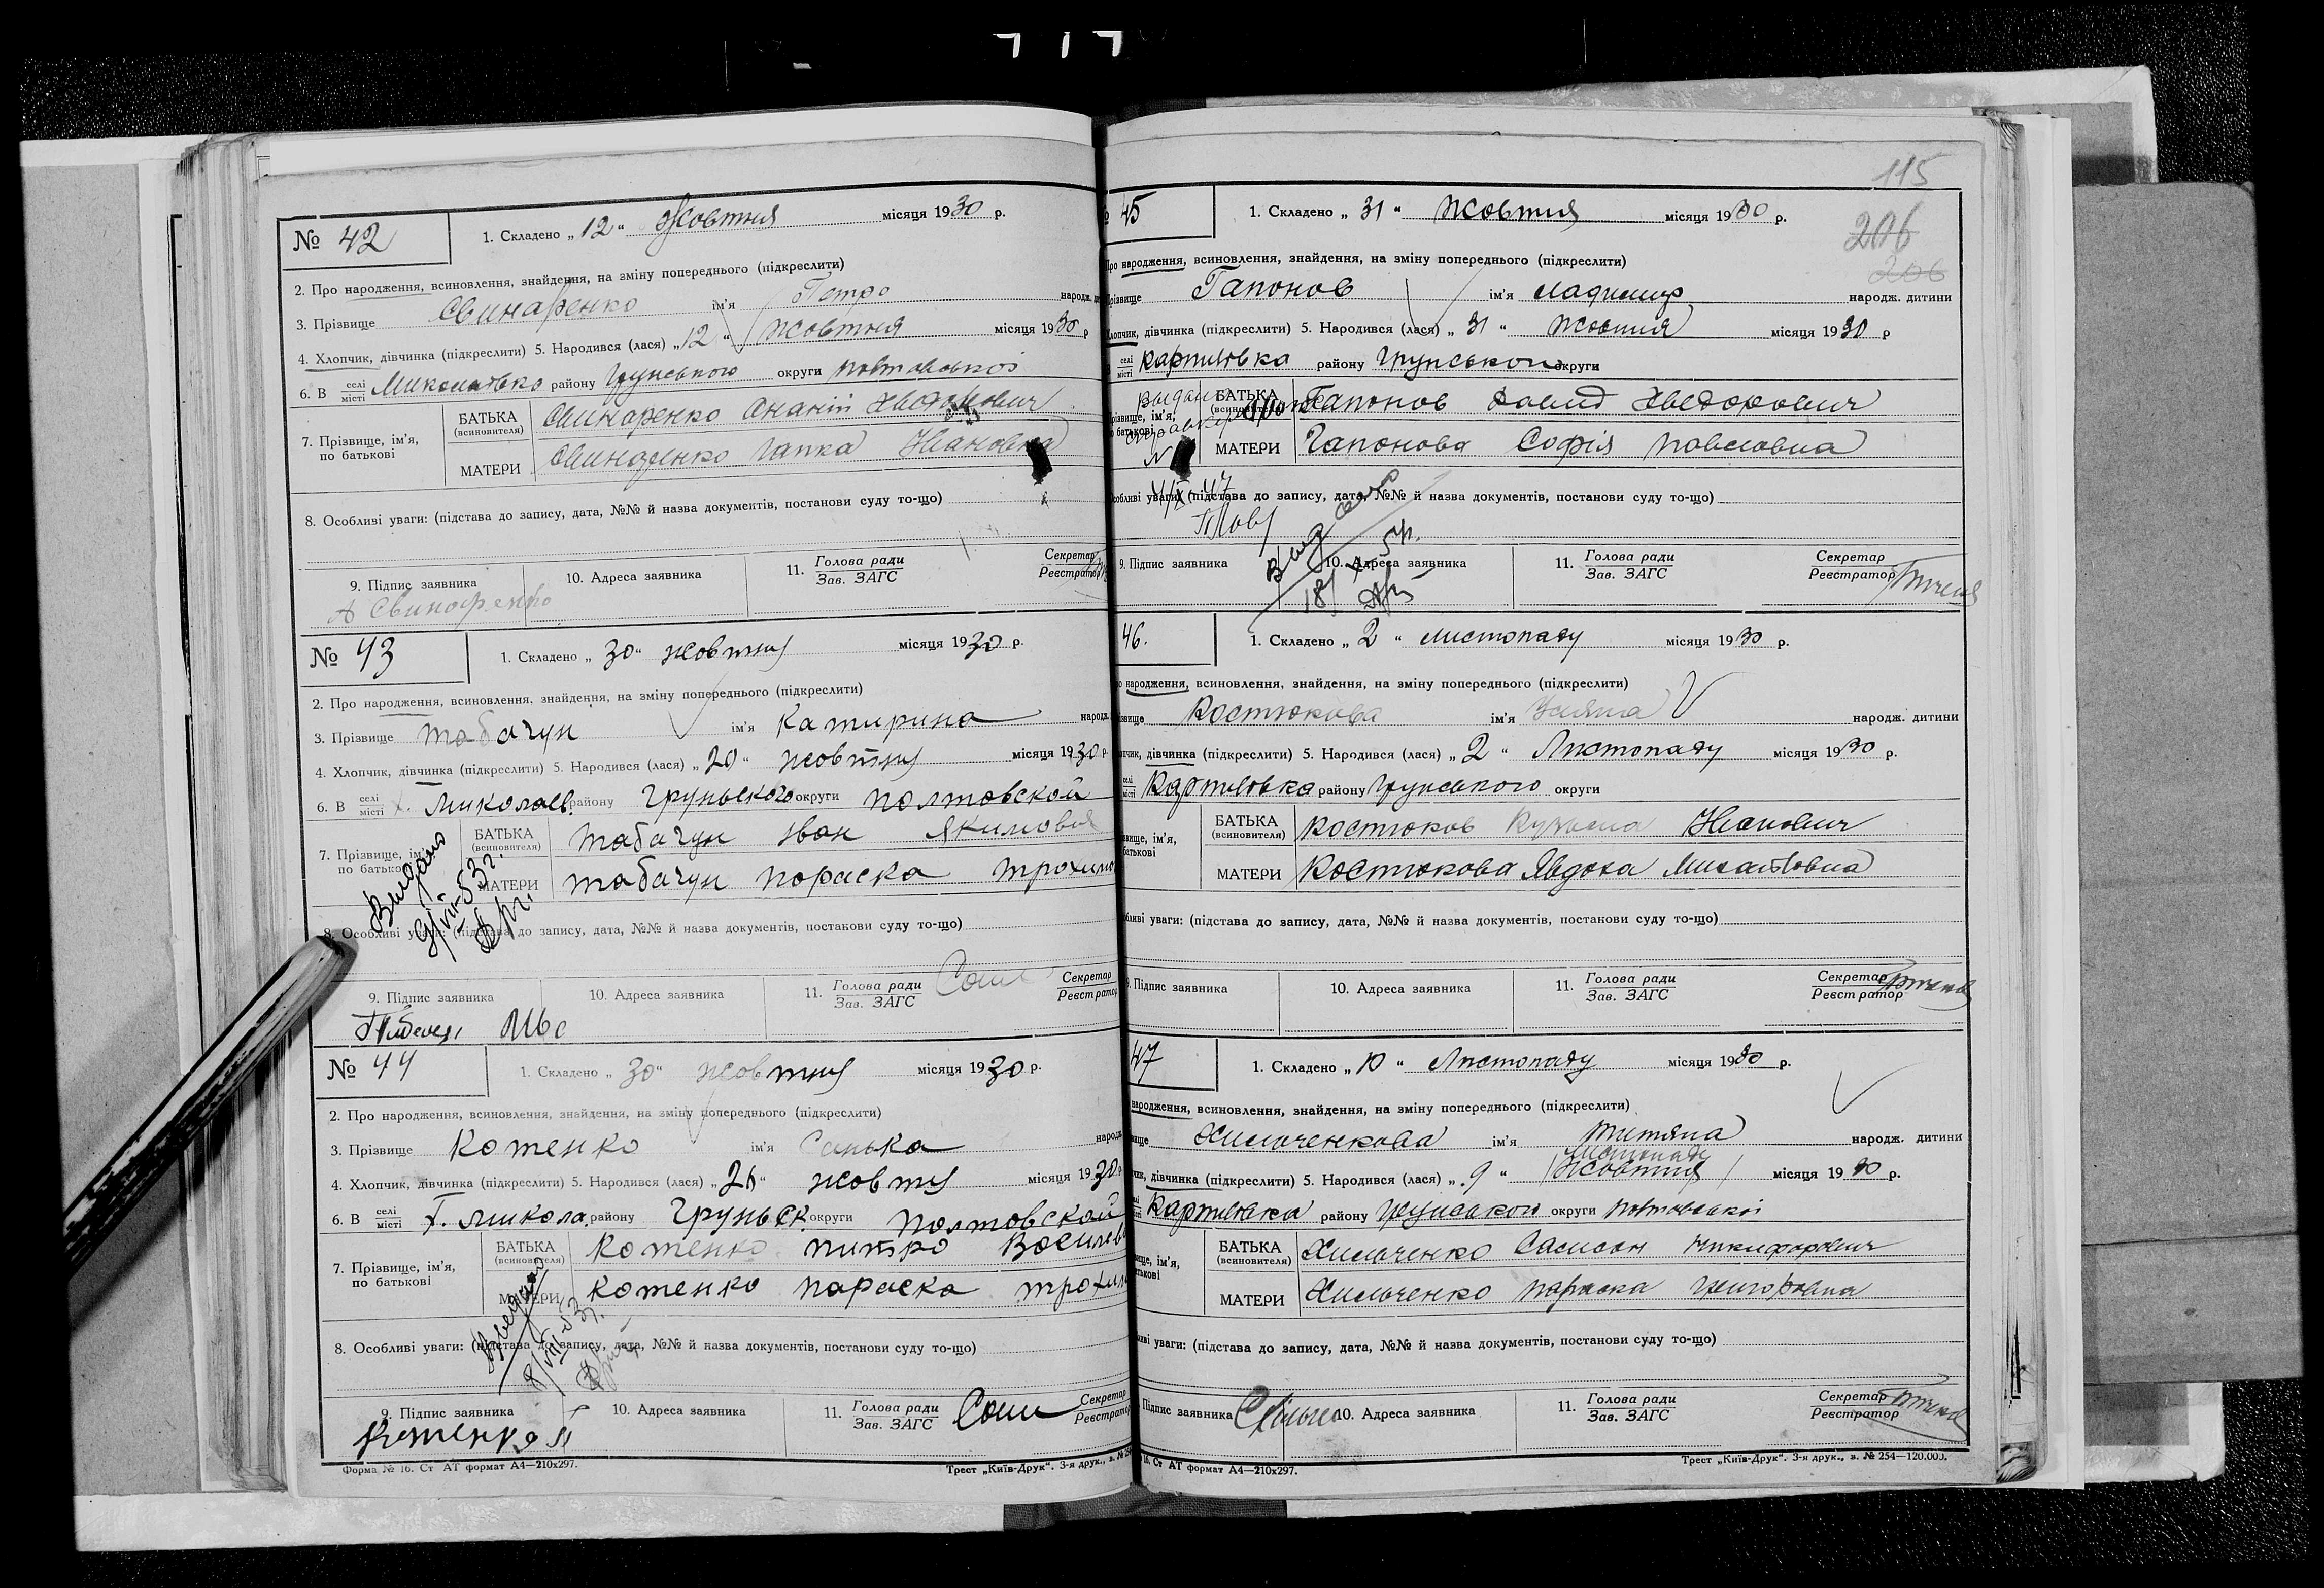 № 42
1. Складено „ 12 “ Жовтня місяця 1930 р.
2. Про народження, всиновлення, знайдення, на зміну попереднього (підкреслити)
3. Прізвище Свинаренко ім'я Петро народж.
4. Хлопчик, дівчинка (підкреслити) 5. Народився (лася) „ 12 “ жовтня місяця 1930 р
6. В селі місті району Грунського округи полтавської
7. Прізвище, ім'я, по батькові
БАТЬКА (всиновителя) Свинаренко Ананій
МАТЕРИ Свинаренко Гапка Ивановна
8. Особливі уваги: (підстава до запису, дата, №№ й назва документів, постанови суду то-що)
9. Підпис заявника 10. Адреса заявника 11. Голова ради Зав. ЗАГС Секретар Реєстратор
А Свинаренко
№ 43
1. Складено „ 30 “ жовтня місяця 1930 р.
2. Про народження, всиновлення, знайдення, на зміну попереднього (підкреслити)
3. Прізвище табачун ім'я Катирина народж.
4. Хлопчик, дівчинка (підкреслити) 5. Народився (лася) „ 20 “ жовтня місяця 1930 р
6. В селі місті х. миколаев. району Груньского округи полтовской
7. Прізвище, ім'я, по батькові
БАТЬКА (всиновителя) табачун іван якимович
МАТЕРИ табачун пораска трохимо
Выдано
9/VII-53г.
8. Особливі уваги: (підстава до запису, дата, №№ й назва документів, постанови суду то-що)
9. Підпис заявника 10. Адреса заявника 11. Голова ради Зав. ЗАГС Секретар Реєстратор
№ 44
1. Складено „ 30 “ жовтня місяця 1930 р.
2. Про народження, всиновлення, знайдення, на зміну попереднього (підкреслити)
3. Прізвище Котенко ім'я Санька народж.
4. Хлопчик, дівчинка (підкреслити) 5. Народився (лася) „ “ жовтня місяця 1930 р
6. В селі місті х. микола. району Груньск. округи полтовской
7. Прізвище, ім'я, по батькові
БАТЬКА (всиновителя) Котенко питро Василев
МАТЕРИ котенко параска трохим
8. Особливі уваги: (підстава до запису, дата, №№ й назва документів, постанови суду то-що)
8/VIII-53г.
9. Підпис заявника 10. Адреса заявника 11. Голова ради Зав. ЗАГС Секретар Реєстратор
Котенко П
Форма № 16. Ст АТ формат А4—210х297.
Трест „Київ-Друк“. 3-я друк., з. № 254
115
206
206
45
1. Складено „ 31 “ Жовтня місяця 1930 р.
Про народження, всиновлення, знайдення, на зміну попереднього (підкреслити)
Прізвище Гапонов ім'я народж. дитини
Хлопчик, дівчинка (підкреслити) 5. Народився (лася) „ 31 “ Жовтня місяця 1930 р
селі місті Карпиловка району Грунського округи
Прізвище, ім'я, по батькові
БАТЬКА (всиновителя) Гапонов Давид Хведорович
МАТЕРИ Гапонова Софія Павловна
Особливі уваги: (підстава до запису, дата, №№ й назва документів, постанови суду то-що)
9. Підпис заявника 10. Адреса заявника 11. Голова ради Зав. ЗАГС Секретар Реєстратор
46.
1. Складено „ 2 “ листопаду місяця 1930 р.
народження, всиновлення, знайдення, на зміну попереднього (підкреслити)
Костюкова ім'я народж. дитини
дівчинка (підкреслити) 5. Народився (лася) „ 2 “ Листопаду місяця 1930 р.
селі місті Карпиловка району Грунського округи
БАТЬКА (всиновителя) Костюков Кузьма Иванович
МАТЕРИ Костюкова Явдоха Михайловна
уваги: (підстава до запису, дата, №№ й назва документів, постанови суду то-що)
9. Підпис заявника 10. Адреса заявника 11. Голова ради Зав. ЗАГС Секретар Реєстратор
47
1. Складено „ 10 “ Листопаду місяця 1930 р.
народження, всиновлення, знайдення, на зміну попереднього (підкреслити)
Хильченкова ім'я Титяна народж. дитини
листопаду
дівчинка (підкреслити) 5. Народився (лася) „ 9 “ (Жовтня) місяця 1930 р.
Карпиловка району Грунського округи Полтавської
БАТЬКА (всиновителя) Хильченко Самсон Никифорович
МАТЕРИ Хильченко Параска Григоровна
уваги: (підстава до запису, дата, №№ й назва документів, постанови суду то-що)
Підпис заявника 10. Адреса заявника 11. Голова ради Зав. ЗАГС Секретар Реєстратор
16. Ст АТ формат А4—210х297.
Трест „Київ-Друк“. 3-я друк., з. № 254—120.000.